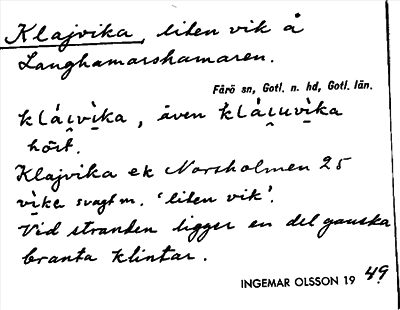 Klajvika, liten vik å
Langhamarshamaren.
Fårö sn, Gotl. n. hd, Gotl. län.
klá̯ɩvì̠ka, även klá̯ɩuvì̠ka
hört.
Klajvika ek Norsholmen 25
vi̠ke svagt m. 'liten vik'.
Vid stranden ligger en del ganska
branta klintar.
INGEMAR OLSSON 19 49